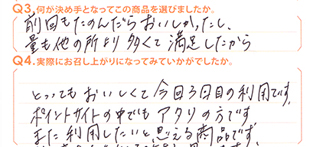 Q3.何が決め手となってこの商品を選びましたか。
前回もたのんだらおいしかったし、
量も他の所より多くて満足したから
Q4.実際にお召し上がりになってみていかがでしたか。
とってもおいしくて今回3回目の利用です。
ポイントサイトの中でもアタリの方です
また利用したいと思える商品です